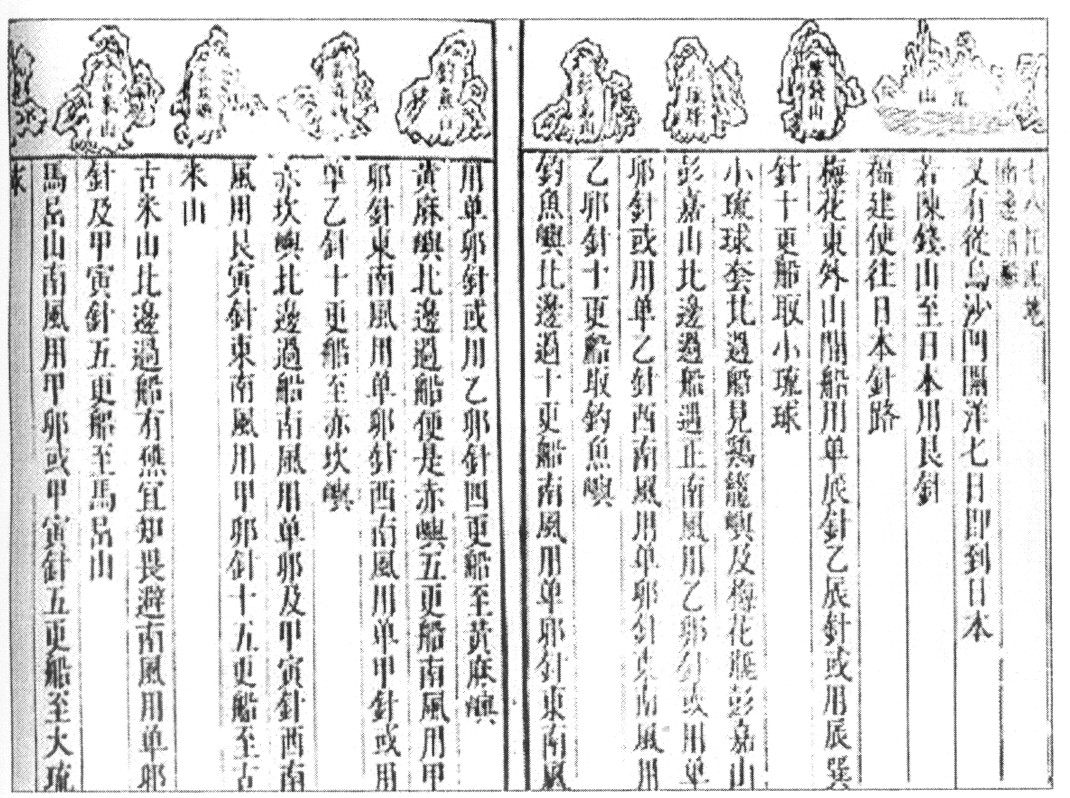 陳錢山
小琉球
彭嘉山
釣魚山
古米山
又有從烏沙門開洋七日即到日本
若陳錢山至日本用艮針
福建使往日本針路
梅花東外山開船用单辰針乙辰針或用辰巽
針十更船取小琉球
小琉球套北過船見鷄籠嶼及梅花瓶彭嘉山
彭嘉山北邊過船遇正南風用乙卯針或用单
卯針或用单乙針西南風用单卯針東南風用
乙卯針十更船取釣魚嶼
釣魚嶼北邊過十更船南風用单卯針東南風
用单卯針或用乙卯針四更船至黃麻嶼
黃麻嶼北邊過船便是赤嶼五更船南風用甲
卯針東南風用单卯針西南風用单甲針或用
单乙針十更船至赤坎嶼
赤坎嶼北邊過船南風用单卯及甲寅針西南
風用艮寅針東南風用甲卯針十五更船至古
米山
古米山北邊過船有礁宜知畏避南風用单卯
針及甲寅針五更船至馬𡶐山
馬𡶐山南風用甲卯或甲寅針五更船至大琉
球